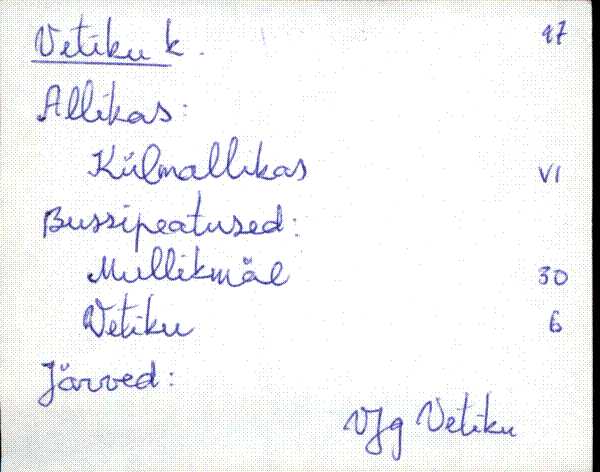 Vetiku k. 97
Allikas:
Külmallikas VI
Bussipeatused:
Mullikmäe 30
Vetiku 6
Järved:
VJg Vetiku